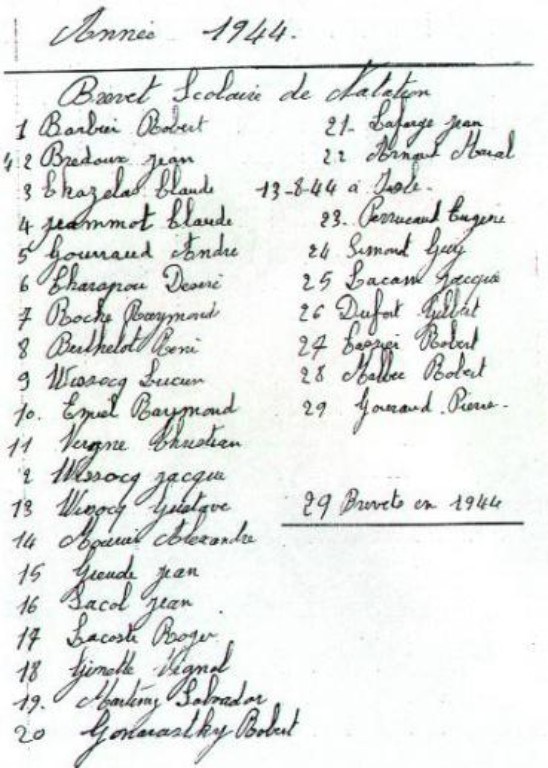 Année 1944.
Brevet Scolaire de Natation
1 Barbier Robert
2 Bredoux Jean
3 Chazelas Claude
4 Jeammot Claude
5 Gourraud André
6 Charapou Désiré
7 Roche Raymond
8 Berthelot René
9 Wissocq Lucien
10. Emiel Raymond
11 Vergne Christian
2 Wissocq Jacque
13 Wissocq Gustave
14 Alexandre
15 Jean
16 Lacol Jean
17 Lacoste Roger
18 Ginette Vignol
19. Martiny Salvador
20 Robert
21. Lafarge Jean
22 Arnaut
13-8-44 à Isle.
23. Perrucaud Eugène
24 Simond Guy
25 Lacam Jacque
26 Dufort Gilbert
27 Robert
28 Malbec Robert
29 Gourraud Pierre.
29 Brevets en 1944